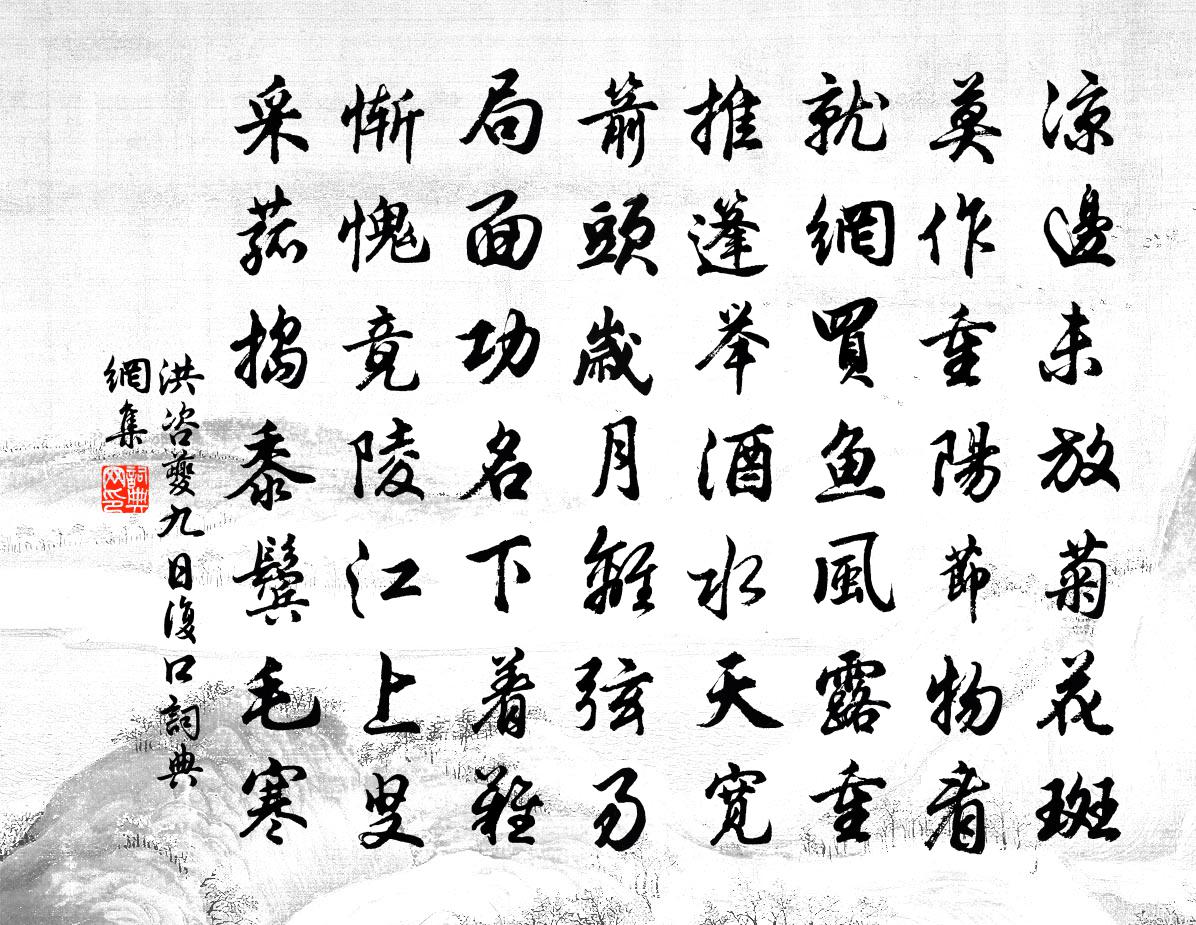 涼邊未放菊花斑
莫作重陽節物看
就網買魚風露重
推蓬举酒水天寬
箭頭歲月離弦易
局面功名下着難
慚愧竟陵江上叟
采菰搗黍鬢毛寒
洪咨夔九日復口詞典
網集
詞典
网印